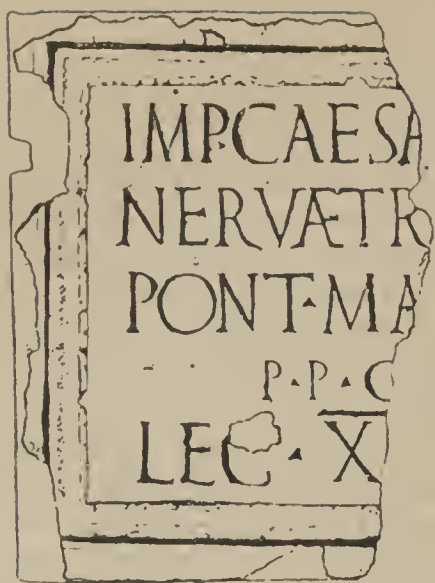 IMP·CAESA
NERVÆTR
PONT·MA
P·P·C
LEG·X